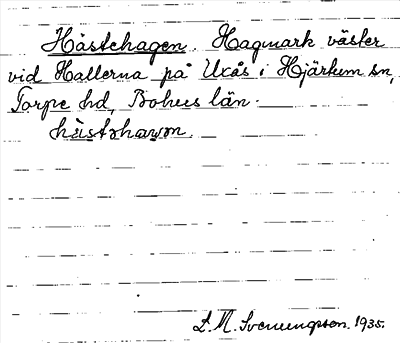 Hästehagen. Hagmark väster
vid Hallerna på Uxås i Hjärtum sn,
Torpe hd, Bohus län.
hästshawm.
L. M. Svenungsson. 1935.